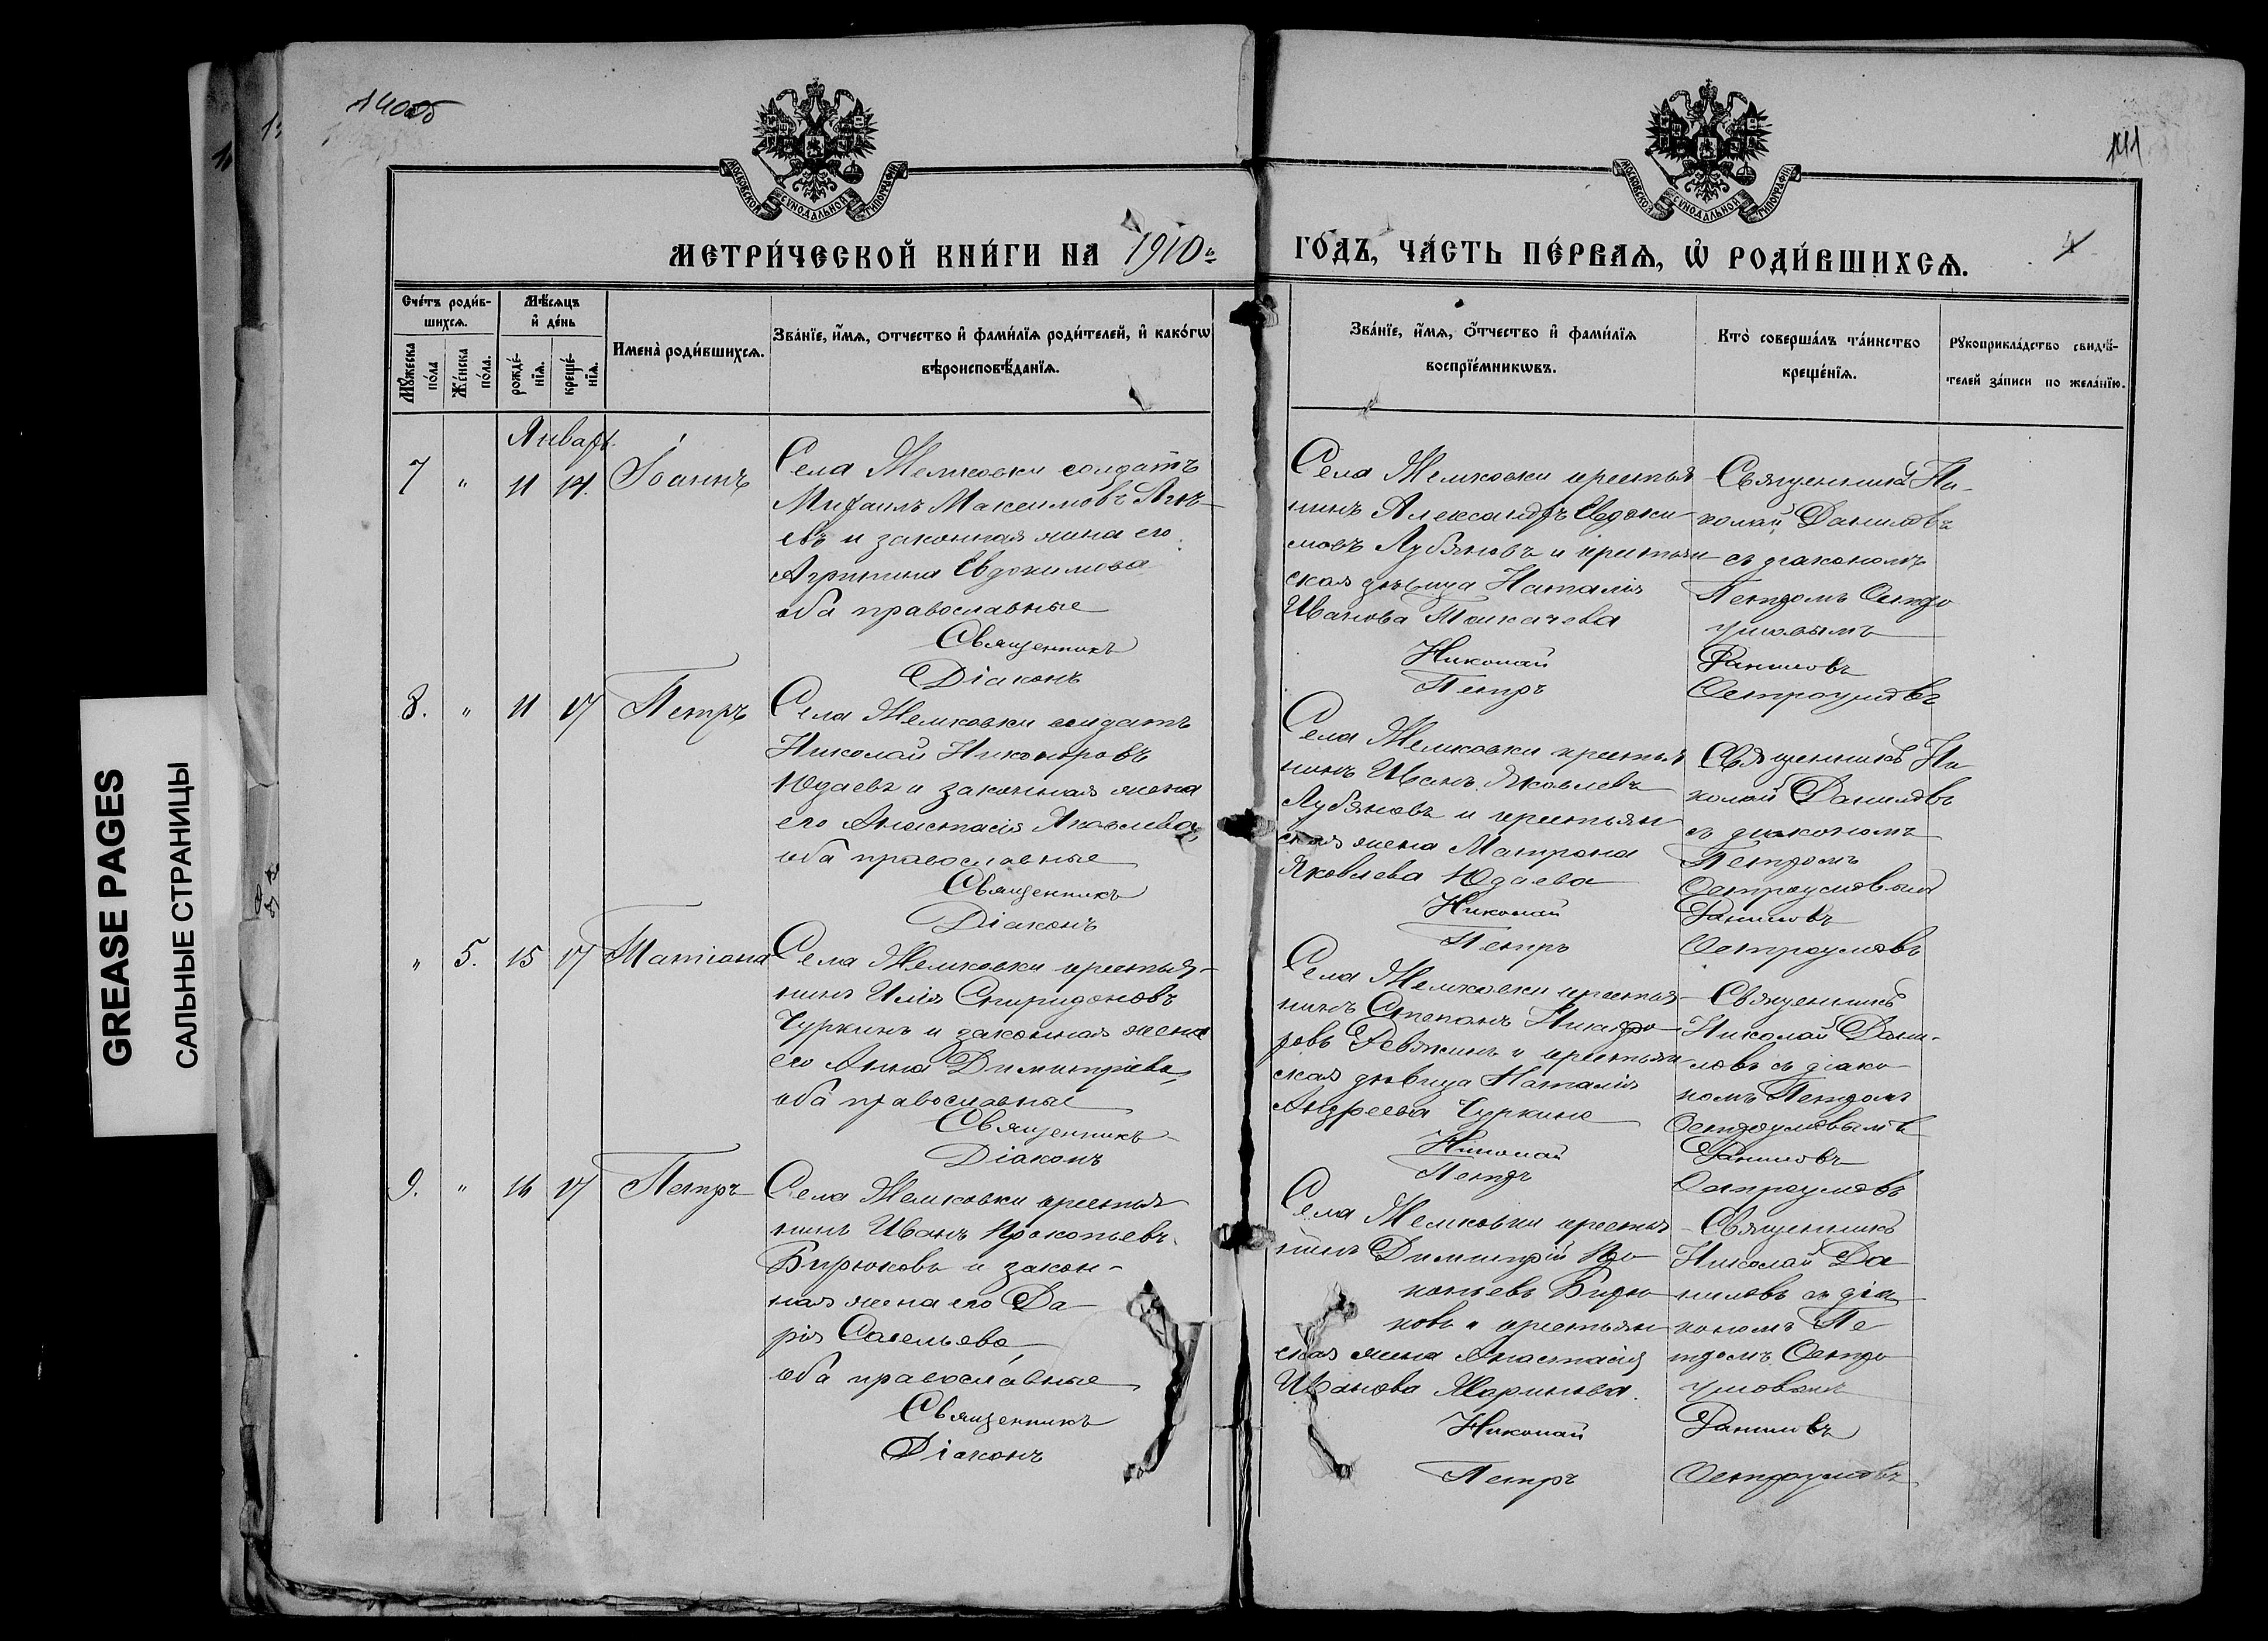 140об
141
4
МОСКОВСКОЙ СѴНОДАЛЬНОЙ ТИПОГРАФІИ
МОСКОВСКОЙ СѴНОДАЛЬНОЙ ТИПОГРАФІИ
МЕТРИ́ЧЕСКОЙ КНИ́ГИ НА 1910й
ГО́ДЪ, ЧА́СТЬ ПЕ́РВАѦ, Ѡ҆ РОДИ́ВШИХСѦ.
Сче́тъ роди́в-
шихсѧ.
Мꙋ́жеска
по́ла
Же́нска
по́ла.
Мѣ́сѧцъ
и҆ де́нь
рожде́-
нїѧ.
креще́-
нїѧ.
Имена̀ роди́вшихсѧ.
Зва́нїе, и҆́мѧ, ѻтчество и҆ фами́лїѧ роди́телей, и҆ како́гѡ
вѣроисповѣ́данїѧ.
Зва́нїе, и҆́мѧ, ѻ҆́тчество и҆ фами́лїѧ
воспрїе́мникѡвъ.
Кто̀ соверша́лъ та́инство
креще́нїѧ.
Рꙋкоприкла́дство свидѣ́-
телей за́писи по жела́нїю.
Январь.
7 " 11 14. Іоаннъ
Села Жемковки солдатъ
Михаилъ Максимовъ
евъ и законная жена его
Агрипина Евдокимова
оба православные
Священникъ
Діаконъ
Села Жемковки крестья
нинъ Александръ Евдоки
мовъ Лубяновъ и крестьян
ская дѣвица Наталія
Иванова Толкачева
Николай
Петръ
Священникъ Ни-
колай Даниловъ
съ діакономъ
Петромъ Остро
умовымъ
Даниловъ
Остроумовъ
8. " 11 17 Петръ
Села Жемковки солдатъ
Николай Никаноровъ
Юдаевъ и законная жена
его Анастасія Яковлева,
оба православные
Священникъ
Діаконъ
Села Жемковки крестья
нинъ Иванъ Яковлевъ
Лубяновъ и крестьян
ская жена Матрона
Яковлева Юдаева
Николай
Петръ
Священникъ Ни
колай Даниловъ
съ діакономъ
Петромъ
Остроумовымъ
Даниловъ
Остроумовъ
" 5. 15 17 Татіана
Села Жемковки крестья-
нинъ Илія Спиридоновъ
Чуркинъ и законная жена
его Анна Димитріева,
оба православные
Священникъ
Діаконъ
Села Жемковки крестья-
нинъ Степанъ Никифо-
ровъ Ревякинъ и крестьян
ская дѣвица Наталія
Андреева Чуркина
Николай
Петръ
Священникъ
Николай Дани-
ловъ съ діако-
номъ Петромъ
Остроумовымъ
Даниловъ
Остроумовъ
9. " 16 17 Петръ
Села Жемковки крестья
нинъ Иванъ Прокопьевъ
Бирюковъ и закон-
ная жена его Да-
рія Савельева
оба православные
Священникъ
Діаконъ
Села Жемковки крестья
нинъ Димитрій Про-
копьевъ Бирю
ковъ и крестьян
ская жена Анастасія
Иванова
Николай
Петръ
Священникъ
Николай Да
ниловъ съ діа
кономъ Пе
тромъ Остро
умовымъ
Даниловъ
Остроумовъ
GREASE PAGES
САЛЬНЫЕ СТРАНИЦЫ